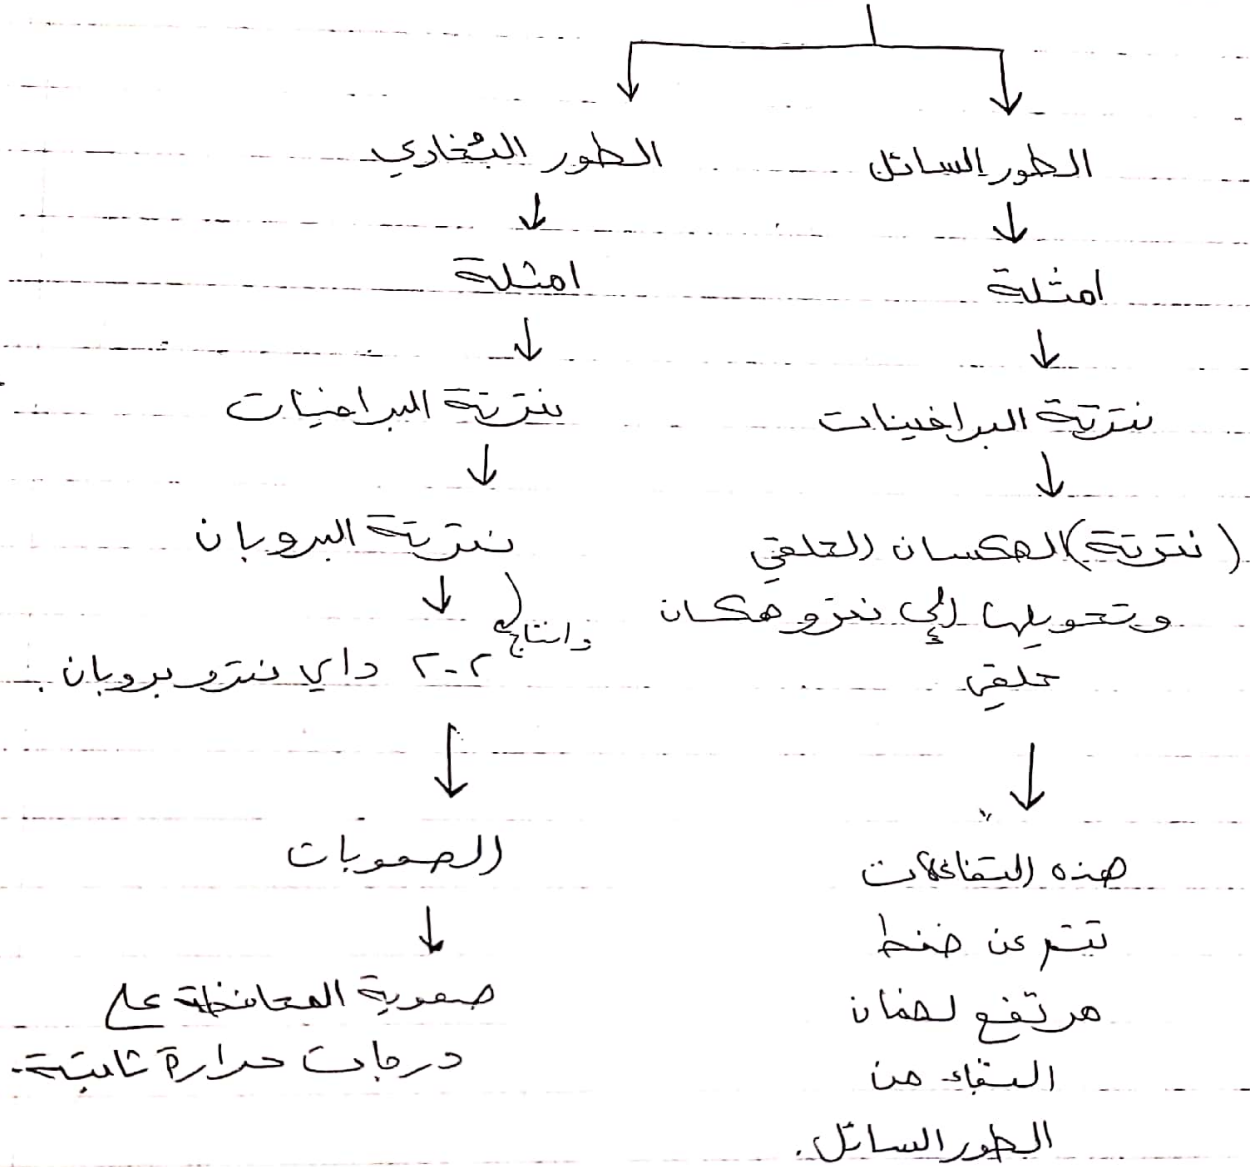 الطور السائل
امثلة
نترتة البرافينات
(نترتة) الهكسان الحلقي
وتحويلها إلى نترو هكسان
حلقي
هذه التفاعلات
تتم عن ضغط
مرتفع لضمان
البقاء من
الطور السائل.
الطور البُخاري
امثلة
نترتة البرافينات
نترتة البروبان
وانتاج
٢-٢ داي نترو بروبان.
الصعوبات
صعوبة المحافظة على
درجات حرارة ثابتة.